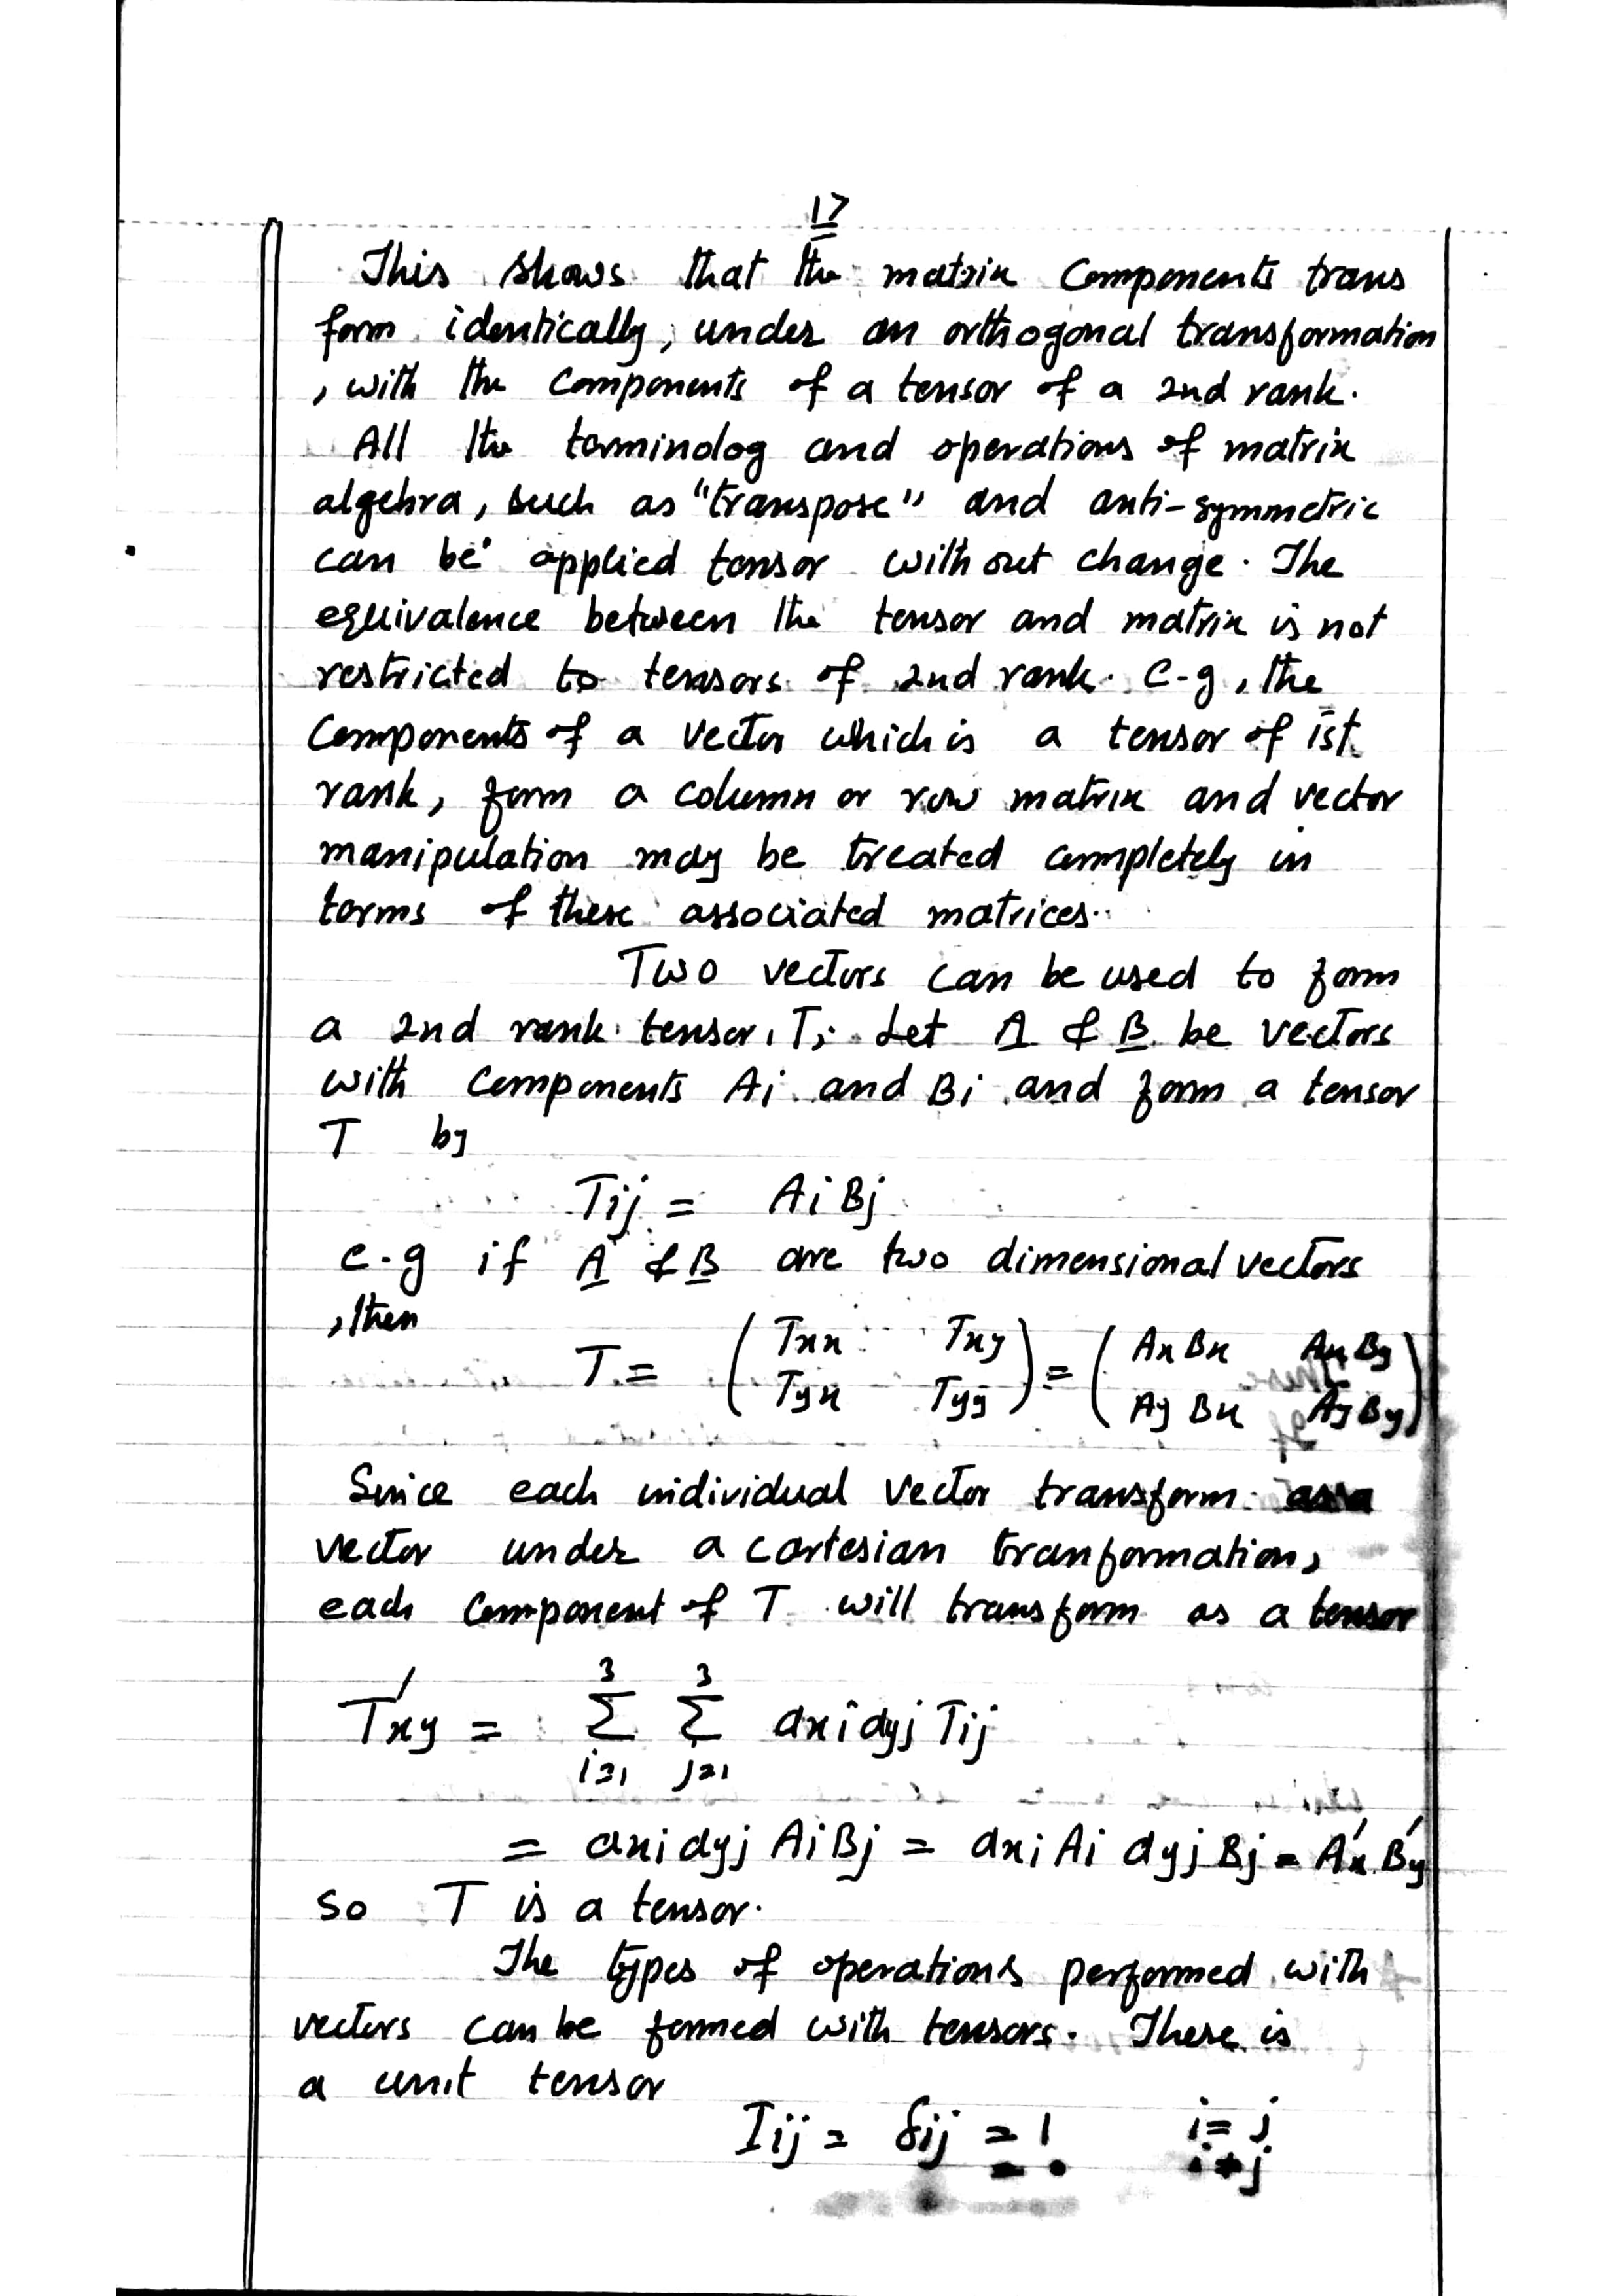 17
This shows that the matrix components trans
form identically, under an orthogonal transformation
, with the components of a tensor of a 2nd rank.
All the terminolog and operations of matrix
algebra, such as "transpose" and anti-symmetric
can be applied tensor with out change. The
equivalence between the tensor and matrix is not
restricted to tensors of 2nd rank. e-g, the
components of a vector which is a tensor of 1st
rank, form a column or row matrix and vector
manipulation may be treated completely in
terms of these associated matrices.
Two vectors can be used to form
a 2nd rank tensor, T; Let A & B be vectors
with components Ai and Bi and form a tensor
T by
Tij = AiBj
e.g if A & B are two dimensional vectors
, then
T = ( Txx Txy ) = ( AxBx AxBy )
( Tyx Tyy ) ( AyBx AyBy )
Since each individual vector transform as a
vector under a cartesian tranformation,
each component of T will transform as a tensor
T'xy = 3Σi=1 3Σj=1 axi ayj Tij
= axi ayj AiBj = axi Ai ayj Bj = A'x B'y
so T is a tensor.
The types of operations performed with
vectors can be formed with tensors. There is
a unit tensor
Iij = δij = 1 i = j
= 0 i ≠ j